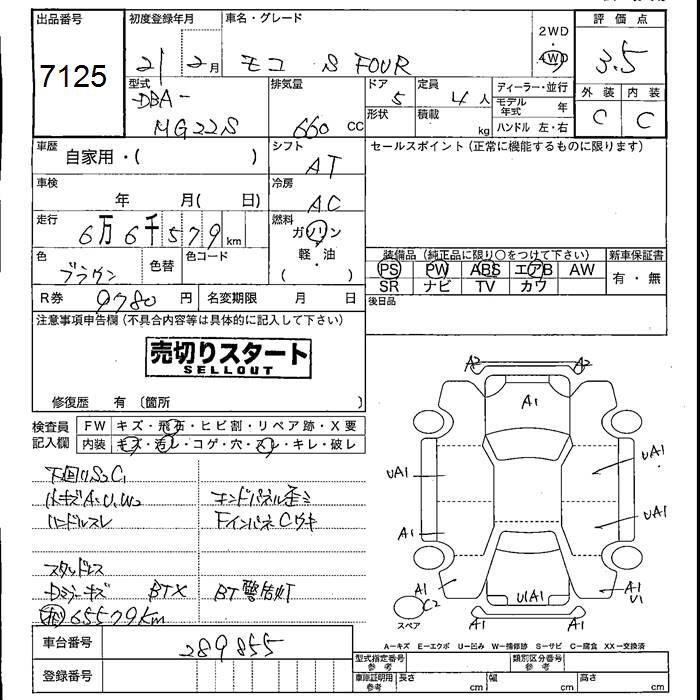 出品番号
7125
初度登録年月
21 2月
車名・グレード
モコ S FOUR
2WD
4WD
評価点
3.5
外装 内装
C C
型式
DBA-
MG22S
排気量
660 cc
ドア
5
形状
定員
4人
積載
kg
ディーラー・並行
モデル年式 年
ハンドル 左・右
車歴
自家用・( )
シフト
AT
セールスポイント(正常に機能するものに限ります)
車検
年 月( 日)
冷房
AC
走行
6万6千579km
燃料
ガソリン
軽・油
( ・ )
色
ブラウン
色替
色コード
装備品(純正品に限り○をつけて下さい)
新車保証書
PS PW ABS エアB AW
SR ナビ TV カワ
有・無
R券 9780 円
名変期限 月 日
後日品
注意事項申告欄(不具合内容等は具体的に記入して下さい)
売切りスタート
SELLOUT
修復歴 有 〔箇所 〕
検査員
記入欄
FW キズ・飛石・ヒビ割・リペア跡・X要
内装 キズ・汚レ・コゲ・穴・スレ・キレ・破レ
下回りS2C1
ハンドルスレ
エンドパネル歪ミ
FインパネCウキ
スタッドレス
Dミラーキズ BTX
BT警告灯
65579km
A2 A2
A1
UA1 UA1
A1 UA1
A1 C2
スペア
UA1
A1 A1
A1 U1
A-キズ E-エクボ U-凹み W-補修跡 S-サビ C-腐食 XX-交換済
車台番号
289855
登録番号
型式指定番号
参考
類別区分番号
参考
車庫証明用
参考
長さ cm
幅 cm
高さ cm